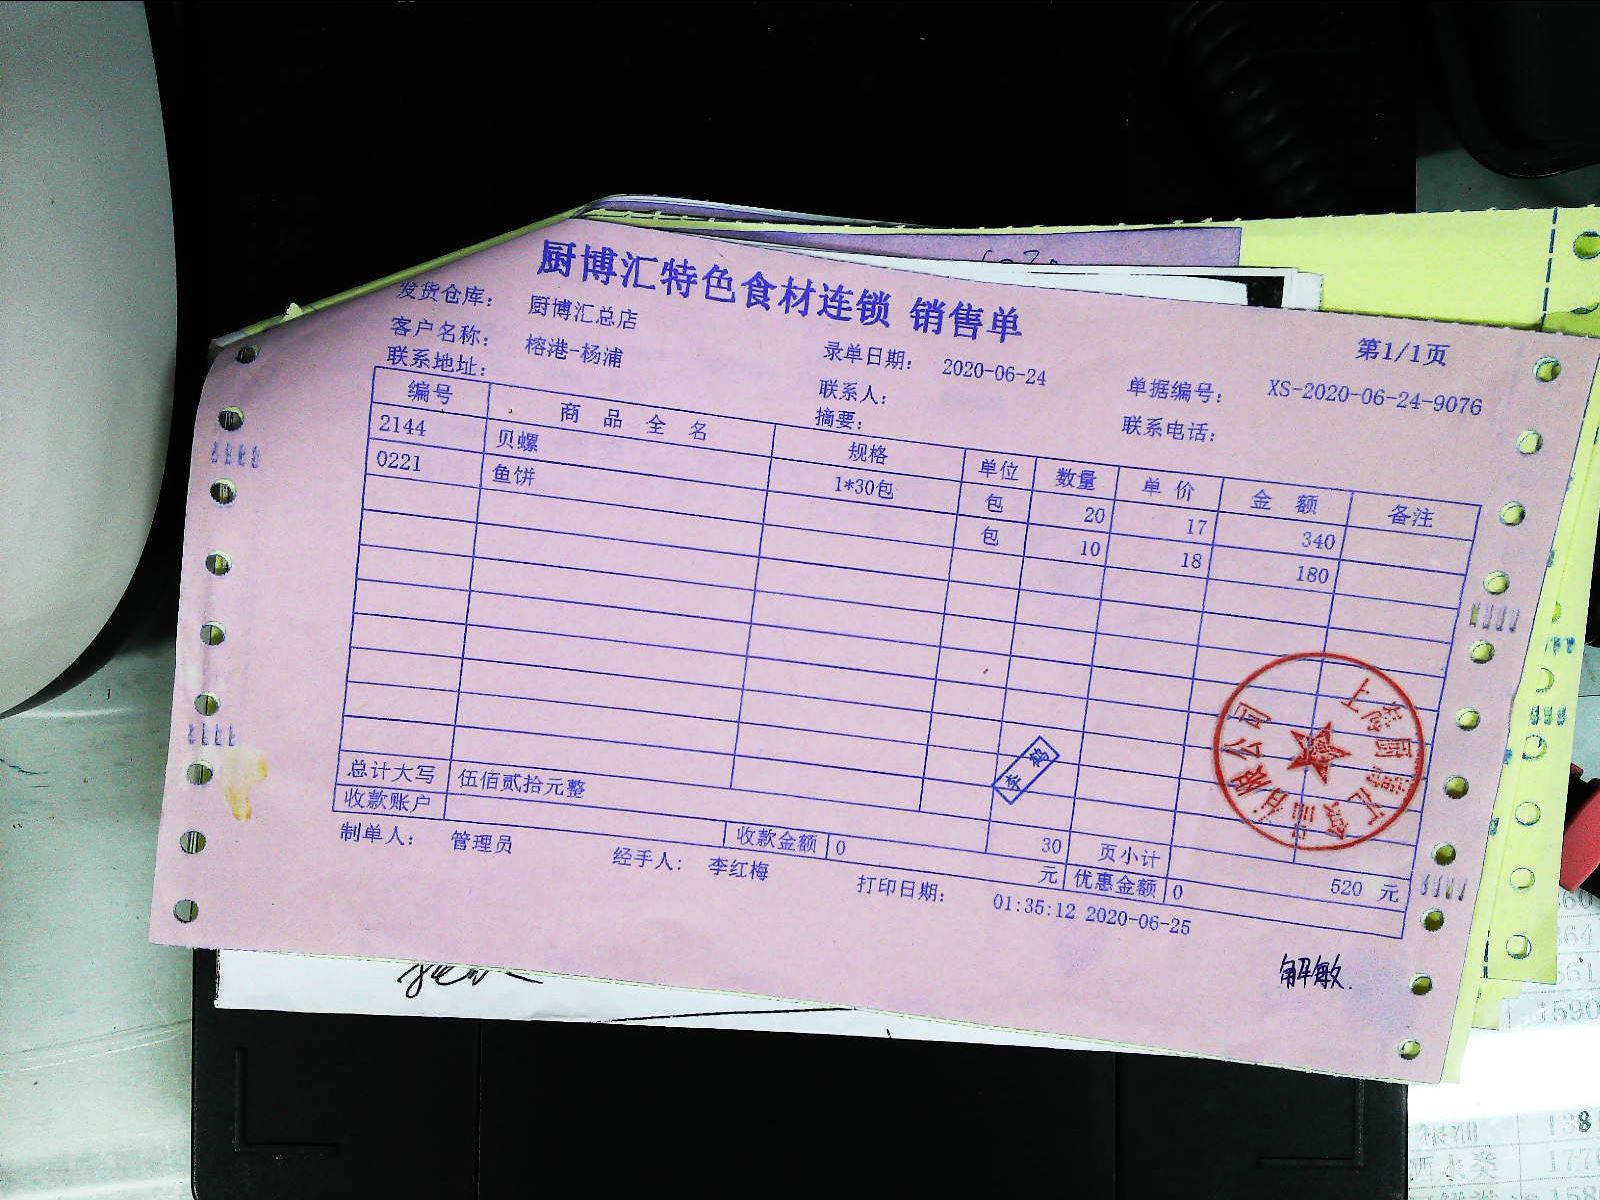 厨博汇特色食材连锁 销售单
第1/1页
发货仓库： 厨博汇总店
客户名称： 榕港-杨浦 录单日期： 2020-06-24 单据编号： XS-2020-06-24-9076
联系地址： 联系人： 联系电话：
摘要：
编号 商品全名 规格 单位 数量 单价 金额 备注
2144 贝螺 1*30包 包 20 17 340
0221 鱼饼 包 10 18 180
总计大写 伍佰贰拾元整 30 页小计 520 元
收款账户 收款金额 0 元 优惠金额 0
制单人： 管理员 经手人： 李红梅 打印日期： 01:35:12 2020-06-25
上海厨博汇食品有限公司
解敏.